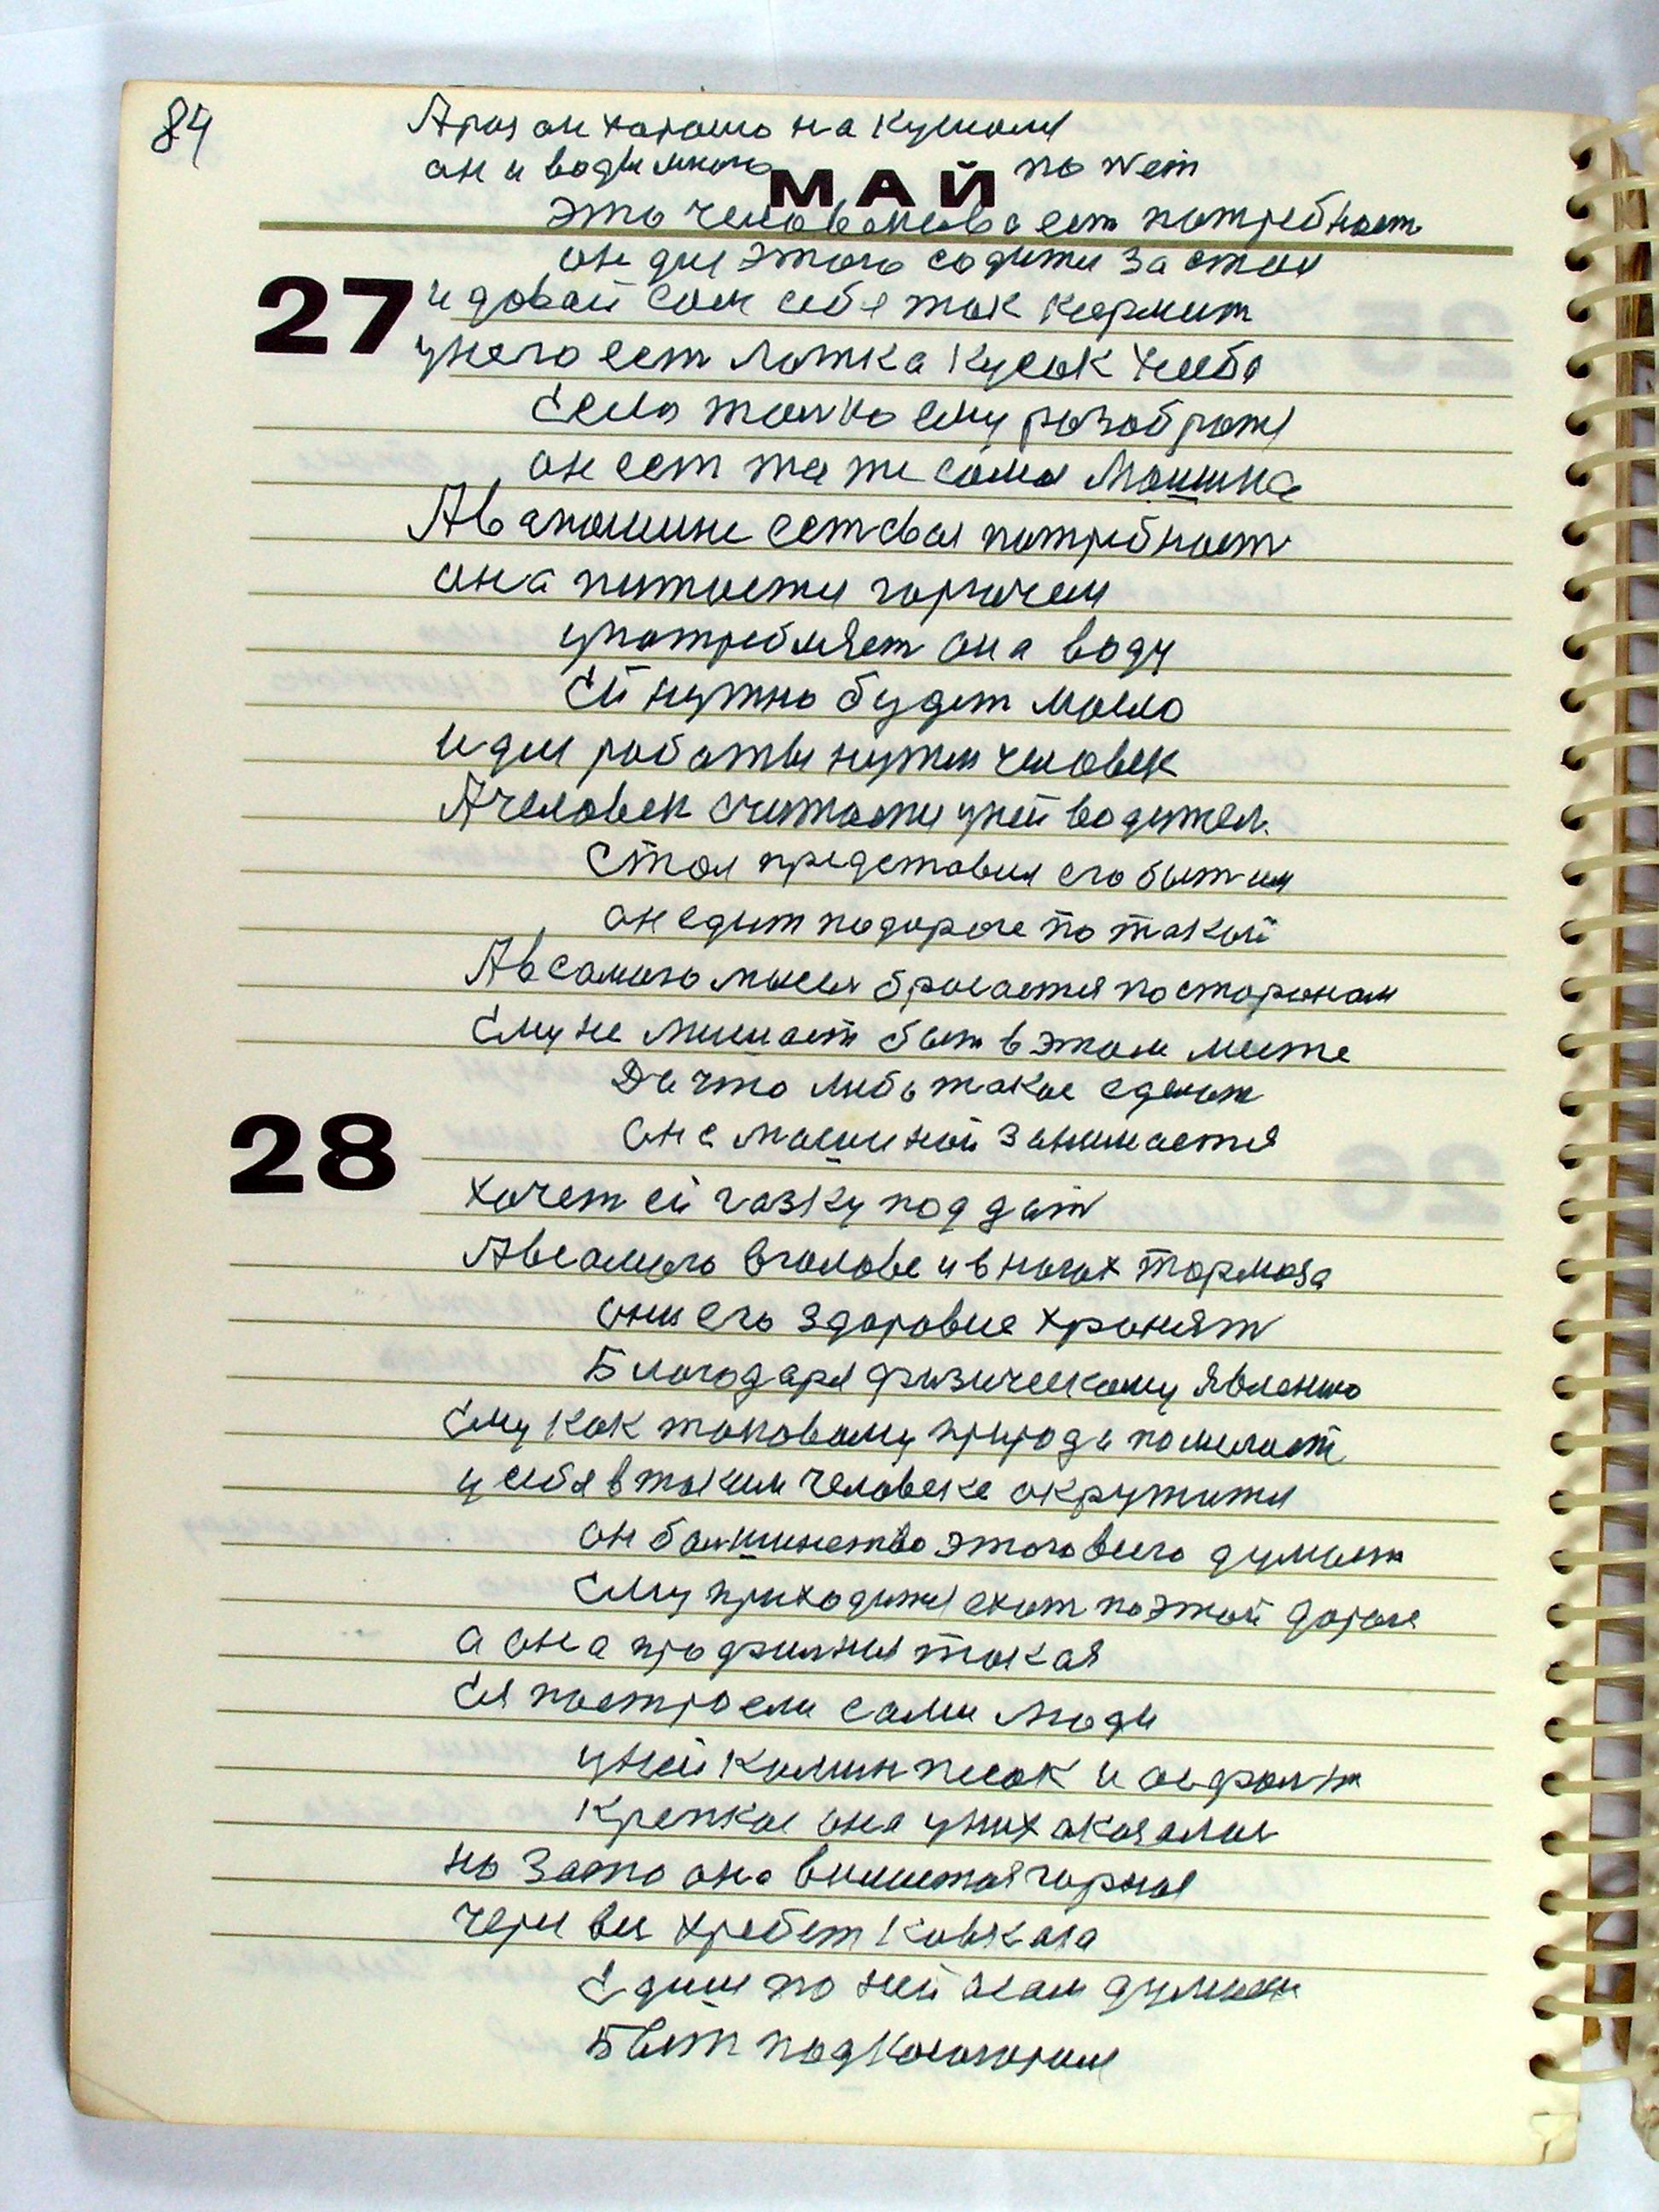 84
А раз он хорошо накушался
он и воды много попьет
МАЙ
это человечества ест потребност
он для этого садится за стол
27
и довай сам себя так кормит
у него ест ложка кусок хлеба
Село только ему разображ
он ест та же сама Машина
А в машине ест своя потребност
она питается горючем
употребляет она воду
Ей нужно будет масло
и для работы нужен человек
А человек считается у ней водител.
Стол представил его быт им
он едит по дороге по такой
А в самого мысля бросается по сторонам
Ему не мишает быт в этом месте
Да что либо такое сделат
он с машиной занимается
28
хочет ей газку под дат
А в самого в голове и в ногах тормоза
они его здоровие хранят
Благодаря физическому явлению
Ему как таковому природа помогает
у себя в таком человеке окружится
он болшинство этого всего думает
Ему приходится ехат по этой дороге
а она профилная такая
Ея построели сами люди
у ней камин песок и асфалт
Крепкое она у них оказалас
но зато она вииистая горная
через вес хребет Кавказа
Едиш по ней а сам думаеш
Быт под Косогором